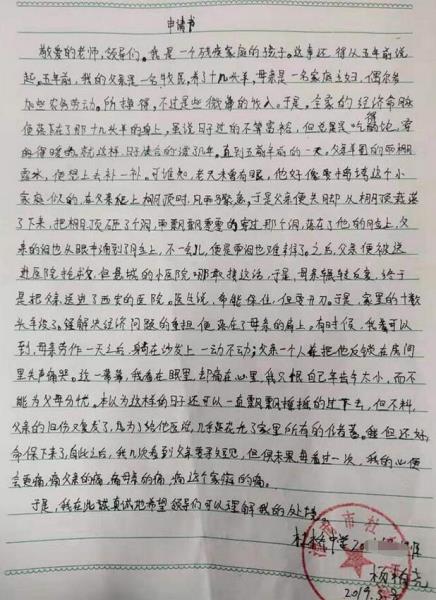 申请书
敬爱的老师,领导们。我是一个残疾家庭的孩子。这事还得从五年前说
起。五年前,我的父亲是一名牧民养了十几头羊,母亲是一名家庭主妇,偶尔参
加些农务劳动。所挣得,不过是些微薄的收入。于是,全家的经济命脉
便落在了那十几头羊的身上,虽说日子过的不算富裕,但总是吃得饱,穿
的得暖。就这样,日子使合的渡几年。直到五前年前的一天,父亲羊圈的雨棚
露水,便想上去补一补。可谁知,老天未曾有眠,他好像要摧垮这个小
家庭似的。在父亲趴上棚顶时,风雨骤急,于是父亲便失脚从棚顶栽落
了下来,把棚顶砸了个洞,雨飘飘零零的穿过那个洞,落在了他的身上,父
亲的泪也从眼中涌到了身上,不一会儿,便是带泪也难。之后,父亲便被送
进医院抢救,但县城的小医院哪敢接这活,于是,母亲辗转反复,终于
是把父亲送进了西安的医院。医生说,命能保住,但要开刀。于是,家里的十数
头羊没了。缓解决经济问题的重担便落在了母亲的肩上。有时候,我看可以
到,母亲劳作一天之后,躺在沙发上一动不动;父亲一个人把他反锁在房间
里失声痛哭。这一幕幕,我看在眼里,却痛在心里,我只恨自己年齿今太小,而不
能为父母分忧。本以为这样的日子还可以一直飘飘摇摇的过下去,但不料,
父亲的旧伤又复发了,几为了给他医治,几乎花光了家里所有的积蓄。虽但还好,
命保下来了,自此之后,我几次看到父亲要寻短见,但很未果,每看过一次,我的心便
会更痛,痛父亲的痛,痛母亲的痛,痛这个家庭的痛。
于是,我在此诚真诚地希望领导们可以理解我的处境。
杜栓中学20
杨柏尧
2019.5.